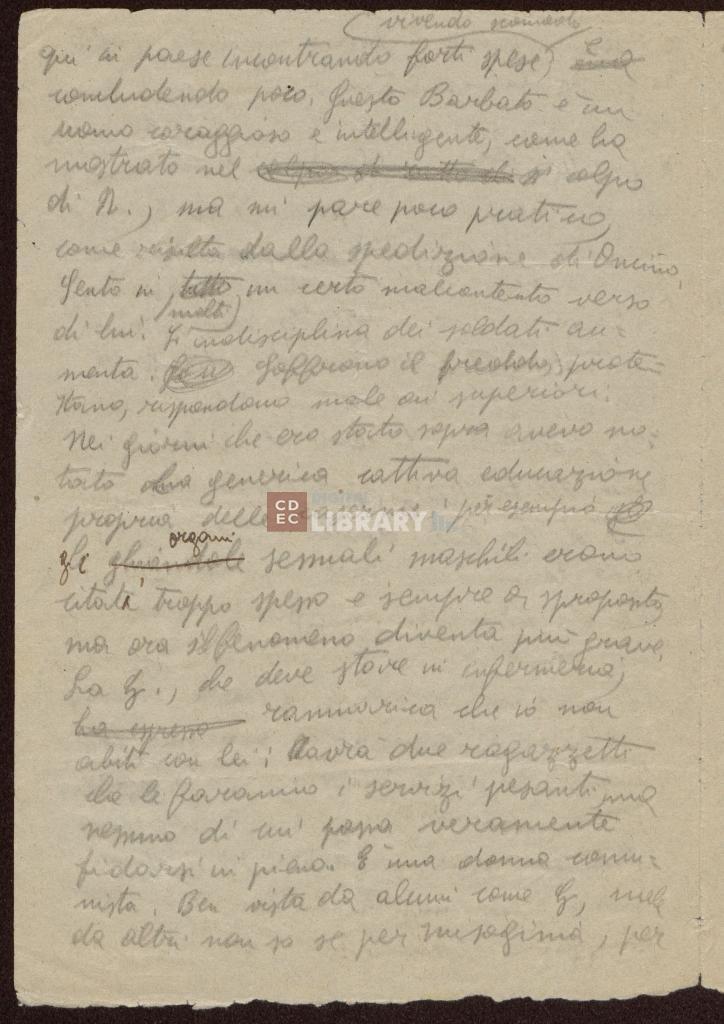 vivendo scomodo
qui in paese incontrando forti spese)
concludendo poco. Questo Barbato è un
uomo coraggioso e intelligente, come ha
mostrato nel colpo
di N., ma mi pare poco pratico,
come risulta dalla spedizione di Oncino.
Sento in tutto un certo malcontento verso
molti
di lui. L'indisciplina dei soldati au-
menta. Soffrono il freddo, prote-
stano, rispondono male ai superiori.
Nei giorni che ero stato sopra avevo no-
tato una generica cattiva educazione
propria delle caserme; per esempio
organi
gli ghiandole sessuali maschili erano
citati troppo spesso e sempre a sproposito,
ma ora il fenomeno diventa più grave.
La G., che deve stare in infermeria,
ha espresso rammarica che io non
abiti con lei; avrà due ragazzetti
che le faranno i servizi pesanti, ma
nessuno di cui possa veramente
fidarsi in pieno. È una donna comu-
nista. Ben vista da alcuni come G, male
da altri non so se per misoginia, per
CDEC DIGITAL LIBRARY